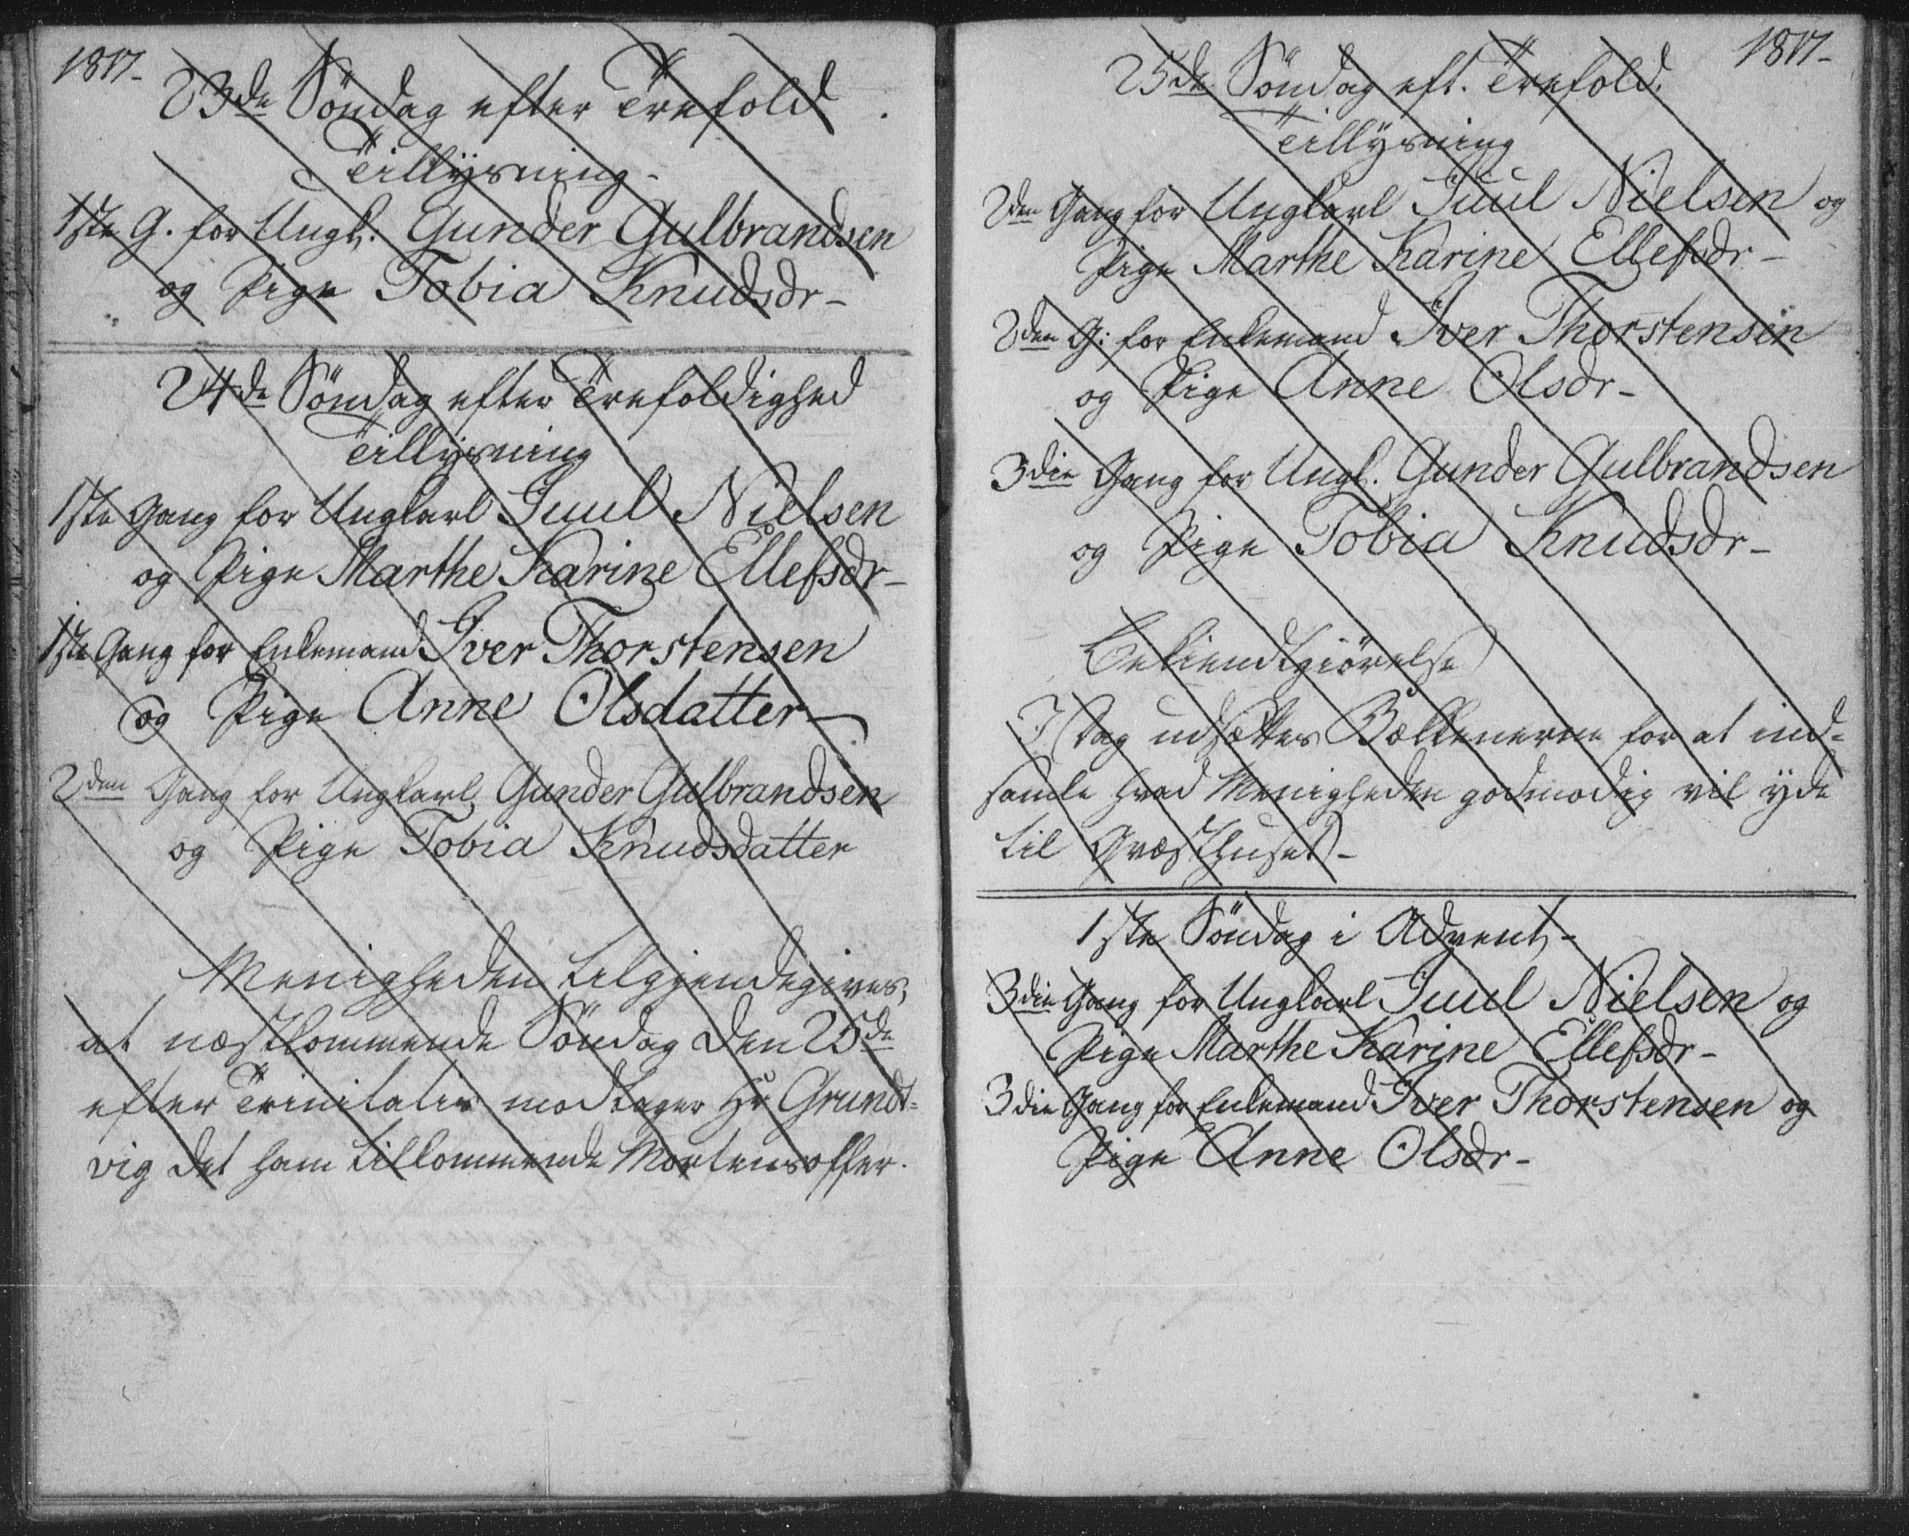 1817-
23de Söndag efter Trefold.
Tillysning-
1ste G. for Ungk. Gunder Gulbrandsen
og Pige Tobia Knudsdr-
24de Söndag efter Trefoldighed
Tillysning
1ste Gang for Ungkarl Juul Nielsen
og Pige Marthe Karine Ellefsdr-
1ste Gang for Enkemand Iver Thorstensen
og Pige Anne Olsdatter-
2den Gang for Ungkarl Gunder Gulbrandsen
og Pige Tobia Knudsdatter
Menigheden tilgjendegives,
at næstkommende Söndag den 25de
efter Trinitatis modtager Hr Grundt-
vig det ham tilkommende Mortensoffer.
1817-
25de Söndag eft. Trefold.
Tillysning
2den Gang for Ungkarl Juul Nielsen og
Pige Marthe Karine Ellefsdr-
2den G: for Enkemand Iver Thorstensen
og Pige Anne Olsdr-
3die Gang for Ungk. Gunder Gulbrandsen
og Pige Tobia Knudsdr-
Bekiendtgiörelse
I Dag udsættes Bækkenerne for at ind-
samle hvad Menigheden godmodig vil yde
til
1ste Söndag i Advent-
3die Gang for Ungkarl Juul Nielsen og
Pige Marthe Karine Ellefsdr-
3die Gang for Enkemand Iver Thorstensen og
Pige Anne Olsdr-